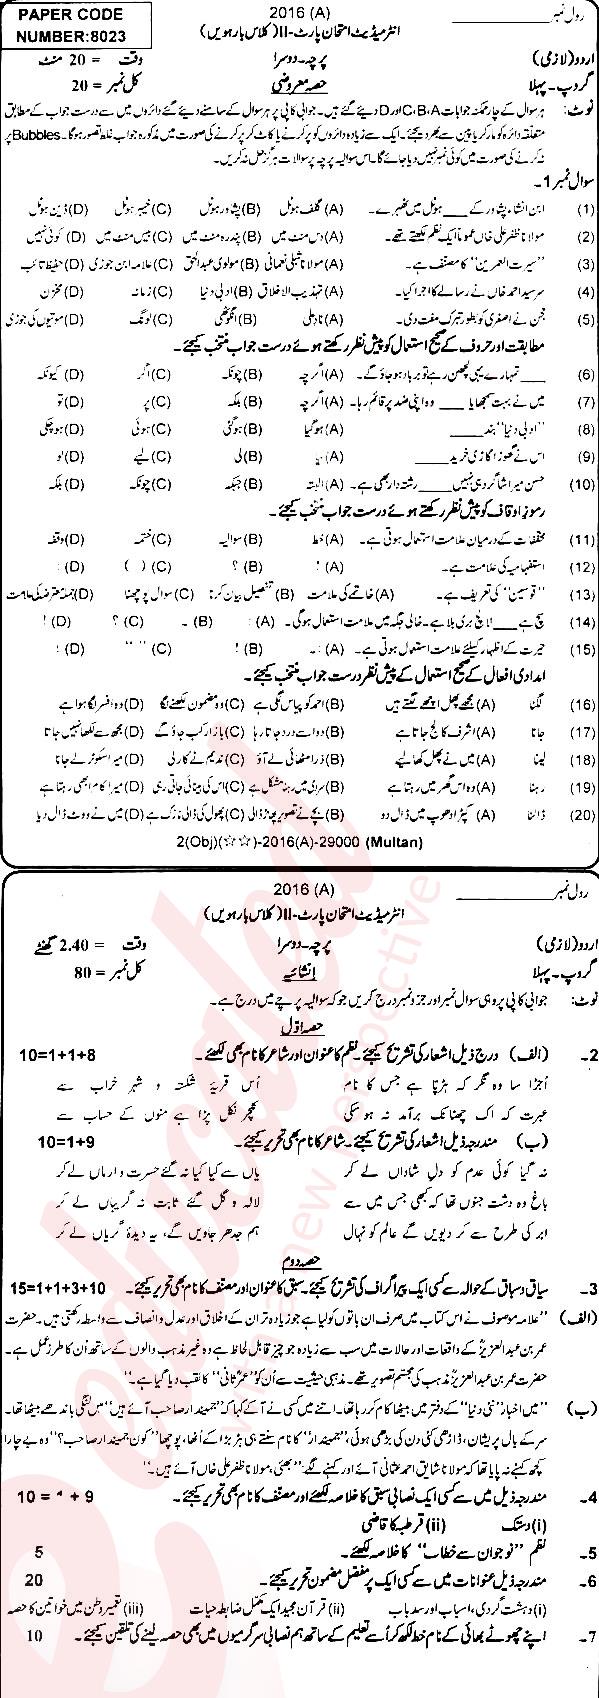 PAPER CODE NUMBER:8023
2016 (A)
رول نمبر
انٹرمیڈیٹ امتحان پارٹ-II (کلاس بارہویں)
اردو (لازمی) پرچہ - دوسرا وقت = 20 منٹ
گروپ - پہلا حصہ معروضی کل نمبر = 20
نوٹ: ہر سوال کے چار ممکنہ جوابات C، B، A اور D دیئے گئے ہیں۔ جوابی کاپی پر ہر سوال کے سامنے دیئے گئے دائروں میں سے درست جواب کے مطابق
متعلقہ دائرہ کو مارکر یا پین سے بھر دیجئے۔ ایک سے زیادہ دائروں کو پُر کرنے یا کاٹ کر پُر کرنے کی صورت میں مذکورہ جواب غلط تصور ہوگا۔ Bubbles پر
نہ کرنے کی صورت میں کوئی نمبر نہیں دیا جائے گا۔ اس سوالیہ پرچہ پر سوالات ہرگز حل نہ کریں۔
سوال نمبر 1۔
(1) ابن انشاء پشاور کے ____ ہوٹل میں ٹھہرے۔ (A) گلف ہوٹل (B) پشاور ہوٹل (C) خیبر ہوٹل (D) ڈین ہوٹل
(2) مولانا ظفر علی خاں عموماً ایک نظم لکھتے تھے۔ (A) دس منٹ میں (B) پندرہ منٹ میں (C) بیس منٹ میں (D) کوئی نہیں
(3) "سیرت العمرین" کا مصنف ہے۔ (A) مولانا شبلی نعمانی (B) مولوی عبدالحق (C) علامہ ابن جوزی (D) حفیظ تائب
(4) سرسید احمد خاں نے رسالے کا اجرا کیا۔ (A) تہذیب الاخلاق (B) ادبی دنیا (C) زمانہ (D) مخزن
(5) جن نے اصغری کو بطور تبرک مفت دی۔ (A) نادعلی (B) انگوٹھی (C) لونگ (D) موتیوں کی جوڑی
مطابقت اور حروف کے صحیح استعمال کو پیش نظر رکھتے ہوئے درست جواب منتخب کیجئے۔
(6) ____ تمہارے یہی لچھن رہے تو برباد ہو جاؤ گے۔ (A) اگرچہ (B) چونکہ (C) اگر (D) کیونکہ
(7) میں نے بہت سمجھایا ____ وہ اپنی ضد پر قائم رہا۔ (A) اگرچہ (B) بلکہ (C) پر (D) تو
(8) "ادبی دنیا" بند ____ (A) ہوگیا (B) ہوگئی (C) ہوئی (D) ہوچکی
(9) اس نے گھوڑا گاڑی خرید ____ (A) (B) لی (C) لیے (D) لو
(10) حسن میرا شاگرد ہی نہیں ____ رشتہ دار بھی ہے۔ (A) البتہ (B) جبکہ (C) چونکہ (D) بلکہ
رموز اوقاف کو پیش نظر رکھتے ہوئے درست جواب منتخب کیجئے۔
(11) مخففات کے درمیان علامت استعمال ہوتی ہے۔ (A) خط (B) سوالیہ (C) ختمہ (D) وقفہ
(12) استفہامیہ کی علامت ہے۔ (A) ! (B) ؟ (C) ( ) (D) :
(13) "قوسین" کی تعریف ہے۔ (A) خاتمے کی علامت (B) تفصیل بیان کرنا (C) سوال پوچھنا (D) جملہ معترضہ کی علامت
(14) سچ ہے ____ لالچ بری بلا ہے۔ خالی جگہ میں علامت استعمال ہوگی۔ (A) : (B) ۔ (C) ؟ (D) !
(15) حیرت کے اظہار کیلئے علامت استعمال ہوتی ہے۔ (A) : (B) ! (C) " " (D)
امدادی افعال کے صحیح استعمال کے پیش نظر درست جواب منتخب کیجئے۔
(16) لگنا (A) مجھے پھل اچھے لگتے ہیں (B) احمد کو پیاس لگی ہے (C) وہ مضمون لکھنے لگا (D) وہ افسر لگا ہوا ہے
(17) جانا (A) اشرف کالج جاتا ہے (B) دوا سے درد جاتا رہا (C) بازار کب جاؤ گے (D) مجھ سے لکھا نہیں جاتا
(18) لینا (A) میں نے پھل کھا لیے (B) ذرا مٹھائی لے آؤ (C) ندیم نے کار لی (D) میرا سکوٹر لے جانا
(19) رہنا (A) وہ اس گھر میں رہتا ہے (B) سردی میں رہنا مشکل ہے (C) اس کی بینائی جاتی رہی (D) میرا کام ابھی رہتا ہے
(20) ڈالنا (A) کپڑا دھوپ میں ڈال دو (B) بچے نے تصویر پھاڑ ڈالی (C) پھول کی ڈالی نازک ہے (D) میں نے ووٹ ڈال دیا
2(Obj)(☆☆)-2016(A)-29000 (Multan)
2016 (A)
رول نمبر
انٹرمیڈیٹ امتحان پارٹ-II (کلاس بارہویں)
اردو (لازمی) پرچہ - دوسرا وقت = 2.40 گھنٹے
گروپ - پہلا انشائیہ کل نمبر = 80
نوٹ: جوابی کاپی پر وہی سوال نمبر اور جزو نمبر درج کریں جو کہ سوالیہ پرچے میں درج ہے۔
حصہ اوّل
2۔ (الف) درج ذیل اشعار کی تشریح کیجئے۔ نظم کا عنوان اور شاعر کا نام بھی لکھئے۔ 10=1+1+8
اُجڑا سا وہ نگر کہ ہڑپا ہے جس کا نام اُس قریۂ شکستہ و شہرِ خراب سے
عبرت کہ اک چھٹانک برآمد نہ ہوسکی کلچر نکل پڑا ہے منوں کے حساب سے
(ب) مندرجہ ذیل اشعار کی تشریح کیجئے۔ شاعر کا نام بھی تحریر کیجئے۔ 10=1+9
نہ گیا کوئی عدم کو دلِ شاداں لے کر یاں سے کیا کیا نہ گئے حسرت و ارماں لے کر
باغ وہ دشتِ جنوں تھا کہ کبھی جس میں سے لالہ و گل گئے ثابت نہ گریباں لے کر
ابر کی طرح سے کر دیویں گے عالم کو نہال ہم جدھر جاویں گے، یہ دیدۂ گریاں لے کر
حصہ دوم
3۔ سیاق و سباق کے حوالہ سے کسی ایک پیراگراف کی تشریح کیجئے۔ سبق کا عنوان اور مصنف کا نام بھی تحریر کیجئے۔ 15=1+1+3+10
(الف) "علامہ موصوف نے اس کتاب میں صرف ان باتوں کو لیا ہے جو زیادہ تر ان کے اخلاق اور عدل و انصاف سے واسطہ رکھتی ہیں۔ حضرت
عمر بن عبدالعزیزؒ کے واقعات اور حالات میں سب سے زیادہ جو چیز قابل لحاظ ہے وہ غیر مذہب والوں کے ساتھ اُن کا طرزِ عمل ہے۔
حضرت عمر بن عبدالعزیزؒ مذہب کی مجسم تصویر تھے۔ مذہبی حیثیت سے اُن کو "عمرِ ثانی" کا لقب دیا گیا ہے۔"
(ب) "میں اخبار "نئی دنیا" کے دفتر میں بیٹھا کام کر رہا تھا۔ اتنے میں کسی نے آ کے کہا کہ "جمیندار صاحب آئے ہیں" میں لنگی باندھے بیٹھا تھا۔
سر کے بال پریشان، ڈاڑھی کئی دن کی بڑھی ہوئی، "جمیندار" کا نام سنتے ہی ہڑبڑا کے اُٹھا، پوچھا "کون جمیندار صاحب؟" وہ بے چارا
کچھ کہنے نہ پایا تھا کہ مولانا شایق احمد عثمانی آئے اور کہنے لگے: "بھئی، مولانا ظفر علی خاں آئے ہیں۔"
4۔ مندرجہ ذیل میں سے کسی ایک نصابی سبق کا خلاصہ لکھئے اور مصنف کا نام بھی تحریر کیجئے۔ 10 = 1 + 9
(i) دستک (ii) قرطبہ کا قاضی
5۔ نظم "نوجوان سے خطاب" کا خلاصہ لکھئے۔ 5
6۔ مندرجہ ذیل عنوانات میں سے کسی ایک پر مفصل مضمون تحریر کیجئے۔ 20
(i) دہشت گردی، اسباب اور سدباب (ii) قرآن مجید ایک مکمل ضابطہ حیات (iii) تعمیر وطن میں خواتین کا حصہ
7۔ اپنے چھوٹے بھائی کے نام خط لکھ کر اُسے تعلیم کے ساتھ ہم نصابی سرگرمیوں میں بھی حصہ لینے کی تلقین کیجئے۔ 10